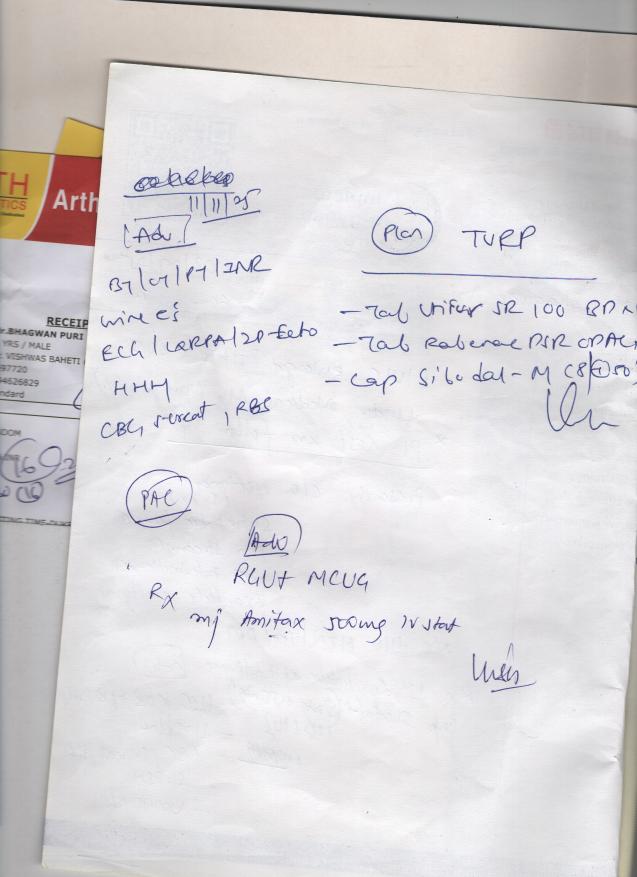 TH
TICS
Arth
RECEIP
r.BHAGWAN PURI
YRS / MALE
. VISHWAS BAHETI
97720
4626829
ndard
11/11/25
Adv
BT/CT/PT/INR
Urine
ECG / CXRPA / 2D-Echo
HHH
CBC, sr creat, RBS
Plan TURP
- Tab SR 100
- Tab DSR
- Cap - M
PAC
Adv
RGU+ MCUG
Rx
Inj Amitax 500mg IV stat